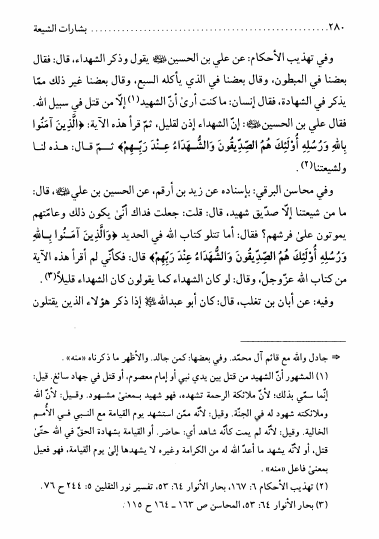 ٢٨٠ ........................................ بشارات الشيعة
وفي تهذيب الأحكام: عن علي بن الحسين ﷺ يقول وذكر الشهداء، قال: فقال
بعضنا في المبطون، وقال بعضنا في الذي يأكله السبع، وقال بعضنا غير ذلك ممّا
يذكر في الشهادة، فقال إنسان: ما كنت أرىٰ أنّ الشهيد(١) إلّا من قتل في سبيل الله.
فقال علي بن الحسين: إنّ الشهداء إذن لقليل، ثمّ قرأ هذه الآية: ﴿الَّذِينَ آمَنُوا
بِاللهِ وَرُسُلِهِ أُوْلَئِكَ هُمُ الصِّدِّيقُونَ وَالشُّهَدَاءُ عِنْدَ رَبِّهِمْ﴾ ثـمّ قـال: هـذه لنـا
ولشيعتنا(٢).
وفي محاسن البرقي: بإسناده عن زيد بن أرقم، عن الحسين بن علي، قال:
ما من شيعتنا إلّا صدّيق شهيد، قال: قلت: جعلت فداك أنّىٰ يكون ذلك وعامّتهم
يموتون علىٰ فرشهم؟ فقال: أما تتلو كتاب الله في الحديد ﴿وَالَّذِينَ آمَنُوا بِـاللهِ
وَرُسُلِهِ أُوْلَئِكَ هُمُ الصِّدِّيقُونَ وَالشُّهَدَاءُ عِنْدَ رَبِّهِمْ﴾ قال: فكأنّي لم أقرأ هذه الآية
من كتاب الله عزّوجلّ، وقال: لو كان الشهداء كما يقولون كان الشهداء قليلاً(٣).
وفيه: عن أبان بن تغلب، قال: كان أبو عبدالله إذا ذكر هؤلاء الذين يقتلون
⇐ جادل والله مع قائم آل محمّد. وفي بعضها: كمن جالد. والأظهر ما ذكرناه «منه».
(١) المشهور أنّ الشهيد من قتل بين يدي نبي أو إمام معصوم، أو قتل في جهاد سائغ. قيل:
إنّما سمّي بذلك؛ لأنّ ملائكة الرحمة تشهده، فهو شهيد بـمعنىٰ مشـهود. وقـيل: لأنّ الله
وملائكته شهود له في الجنّة. وقيل: لأنّه ممّن استشهد يوم القيامة مع النبي في الأُمـم
الخالية. وقيل: لأنّه لم يمت كأنّه شاهد أي: حاضر. أو لقيامه بشهادة الحقّ في الله حتّىٰ
قتل، أو لأنّه يشهد ما أعدّ الله له من الكرامة وغيره لا يشهدها إلىٰ يوم القيامة، فهو فعيل
بمعنىٰ فاعل «منه».
(٢) تهذيب الأحكام ٦: ١٦٧، بحار الأنوار ٦٤: ٥٣، تفسير نور الثقلين ٥: ٢٤٤ ح ٧٦.
(٣) بحار الأنوار ٦٤: ٥٣، المحاسن ص ١٦٣ ـ ١٦٤ ح ١١٥.